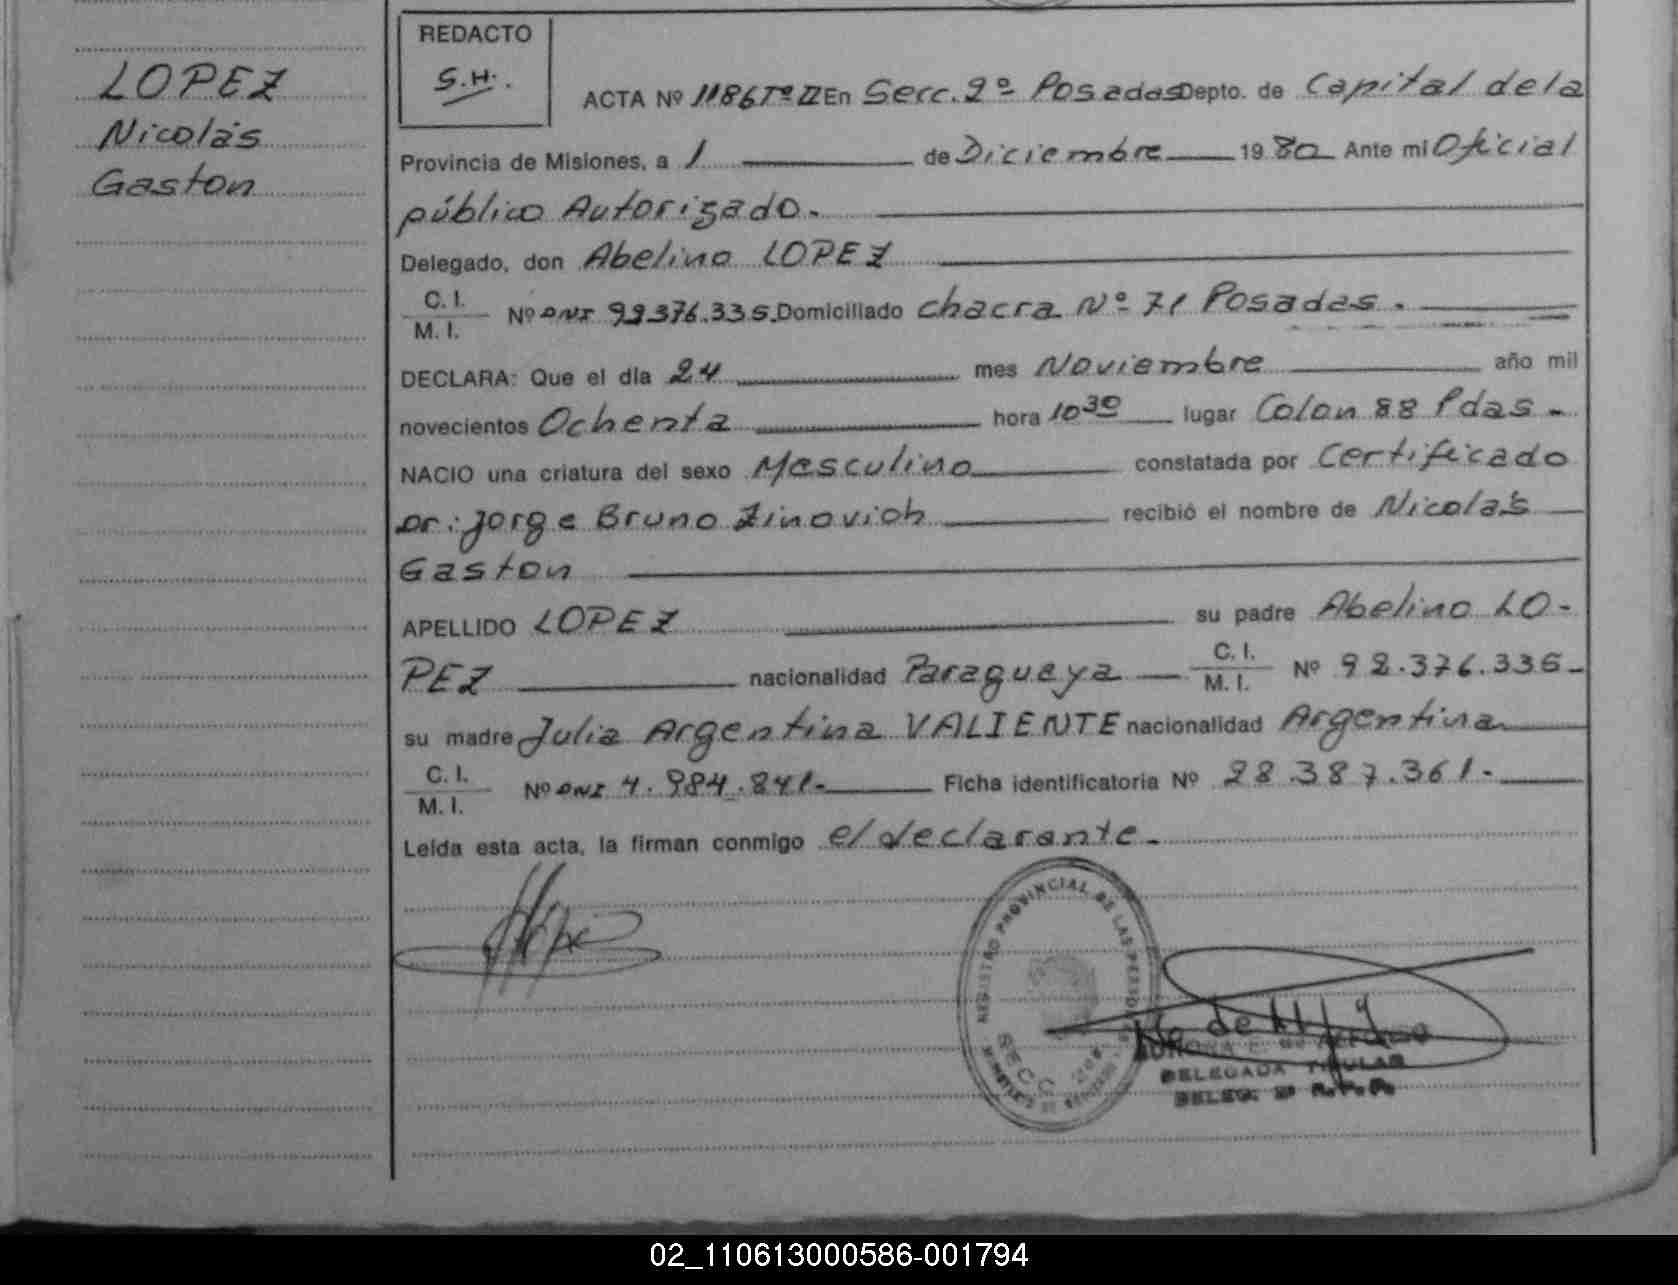 LOPEZ
Nicolás
Gaston
REDACTO
S.H.
ACTA Nº 1186 Tº II En Secc. 2º Posadas Depto. de Capital de la
Provincia de Misiones, a 1 de Diciembre 1980 Ante mi Oficial
público Autorizado.
Delegado, don Abelino LOPEZ
C. I.
M. I.
Nº DNI 92376.335. Domiciliado chacra Nº 71 Posadas.
DECLARA: Que el día 24 mes Noviembre año mil
novecientos Ochenta hora 10 30 lugar Colon 88 Pdas.
NACIO una criatura del sexo Masculino constatada por Certificado
Dr: Jorge Bruno Zinovich recibió el nombre de Nicolás
Gaston
APELLIDO LOPEZ su padre Abelino LO-
PEZ nacionalidad Paraguaya C. I.
M. I.
Nº 92.376.335-
su madre Julia Argentina VALIENTE nacionalidad Argentina
C. I.
M. I.
Nº DNI 4.984.841- Ficha identificatoria Nº 28.387.361-
Leída esta acta, la firman conmigo el declarante.
REGISTRO PROVINCIAL DE LAS PERSONAS
SECC. 2da.
DELEGADA TITULAR
DELEG. 2ª R.P.P.
02_110613000586-001794